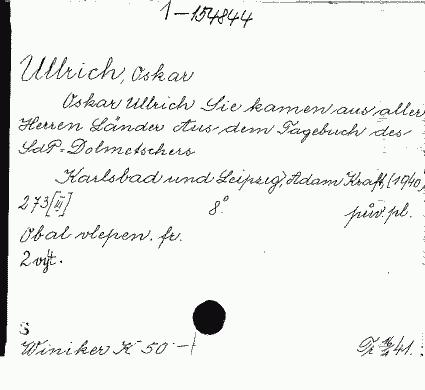 1-154844
Ullrich, Oskar
Oskar Ullrich Sie kamen aus aller
Herren Länder Aus dem Tagebuch des
SdP-Dolmetschers
Karlsbad und Leipzig, Adam Kraft, (1940)
273[II] 8° pův. pl.
Obal vlepen. fr.
2 výt.
S
Winiker K 50 -
41.